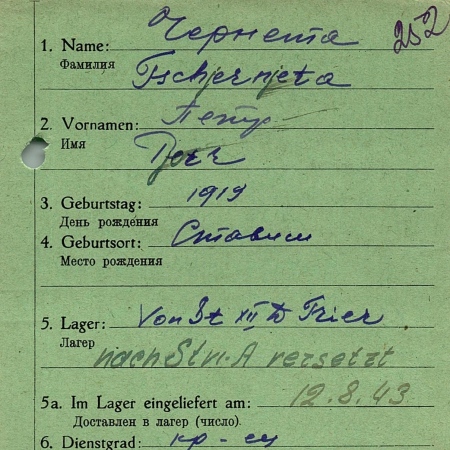 252
1. Name: Чернета
Фамилия
Tschernjeta
2. Vornamen: Петр
Имя
3. Geburtstag: 1919
День рождения
4. Geburtsort: Ставищи
Место рождения
5. Lager: Von St XII D Trier
Лагер
nach St VI. A versetzt
5a. Im Lager eingeliefert am: 12.8.43
Доставлен в лагер (число).
6. Dienstgrad: кр-ец